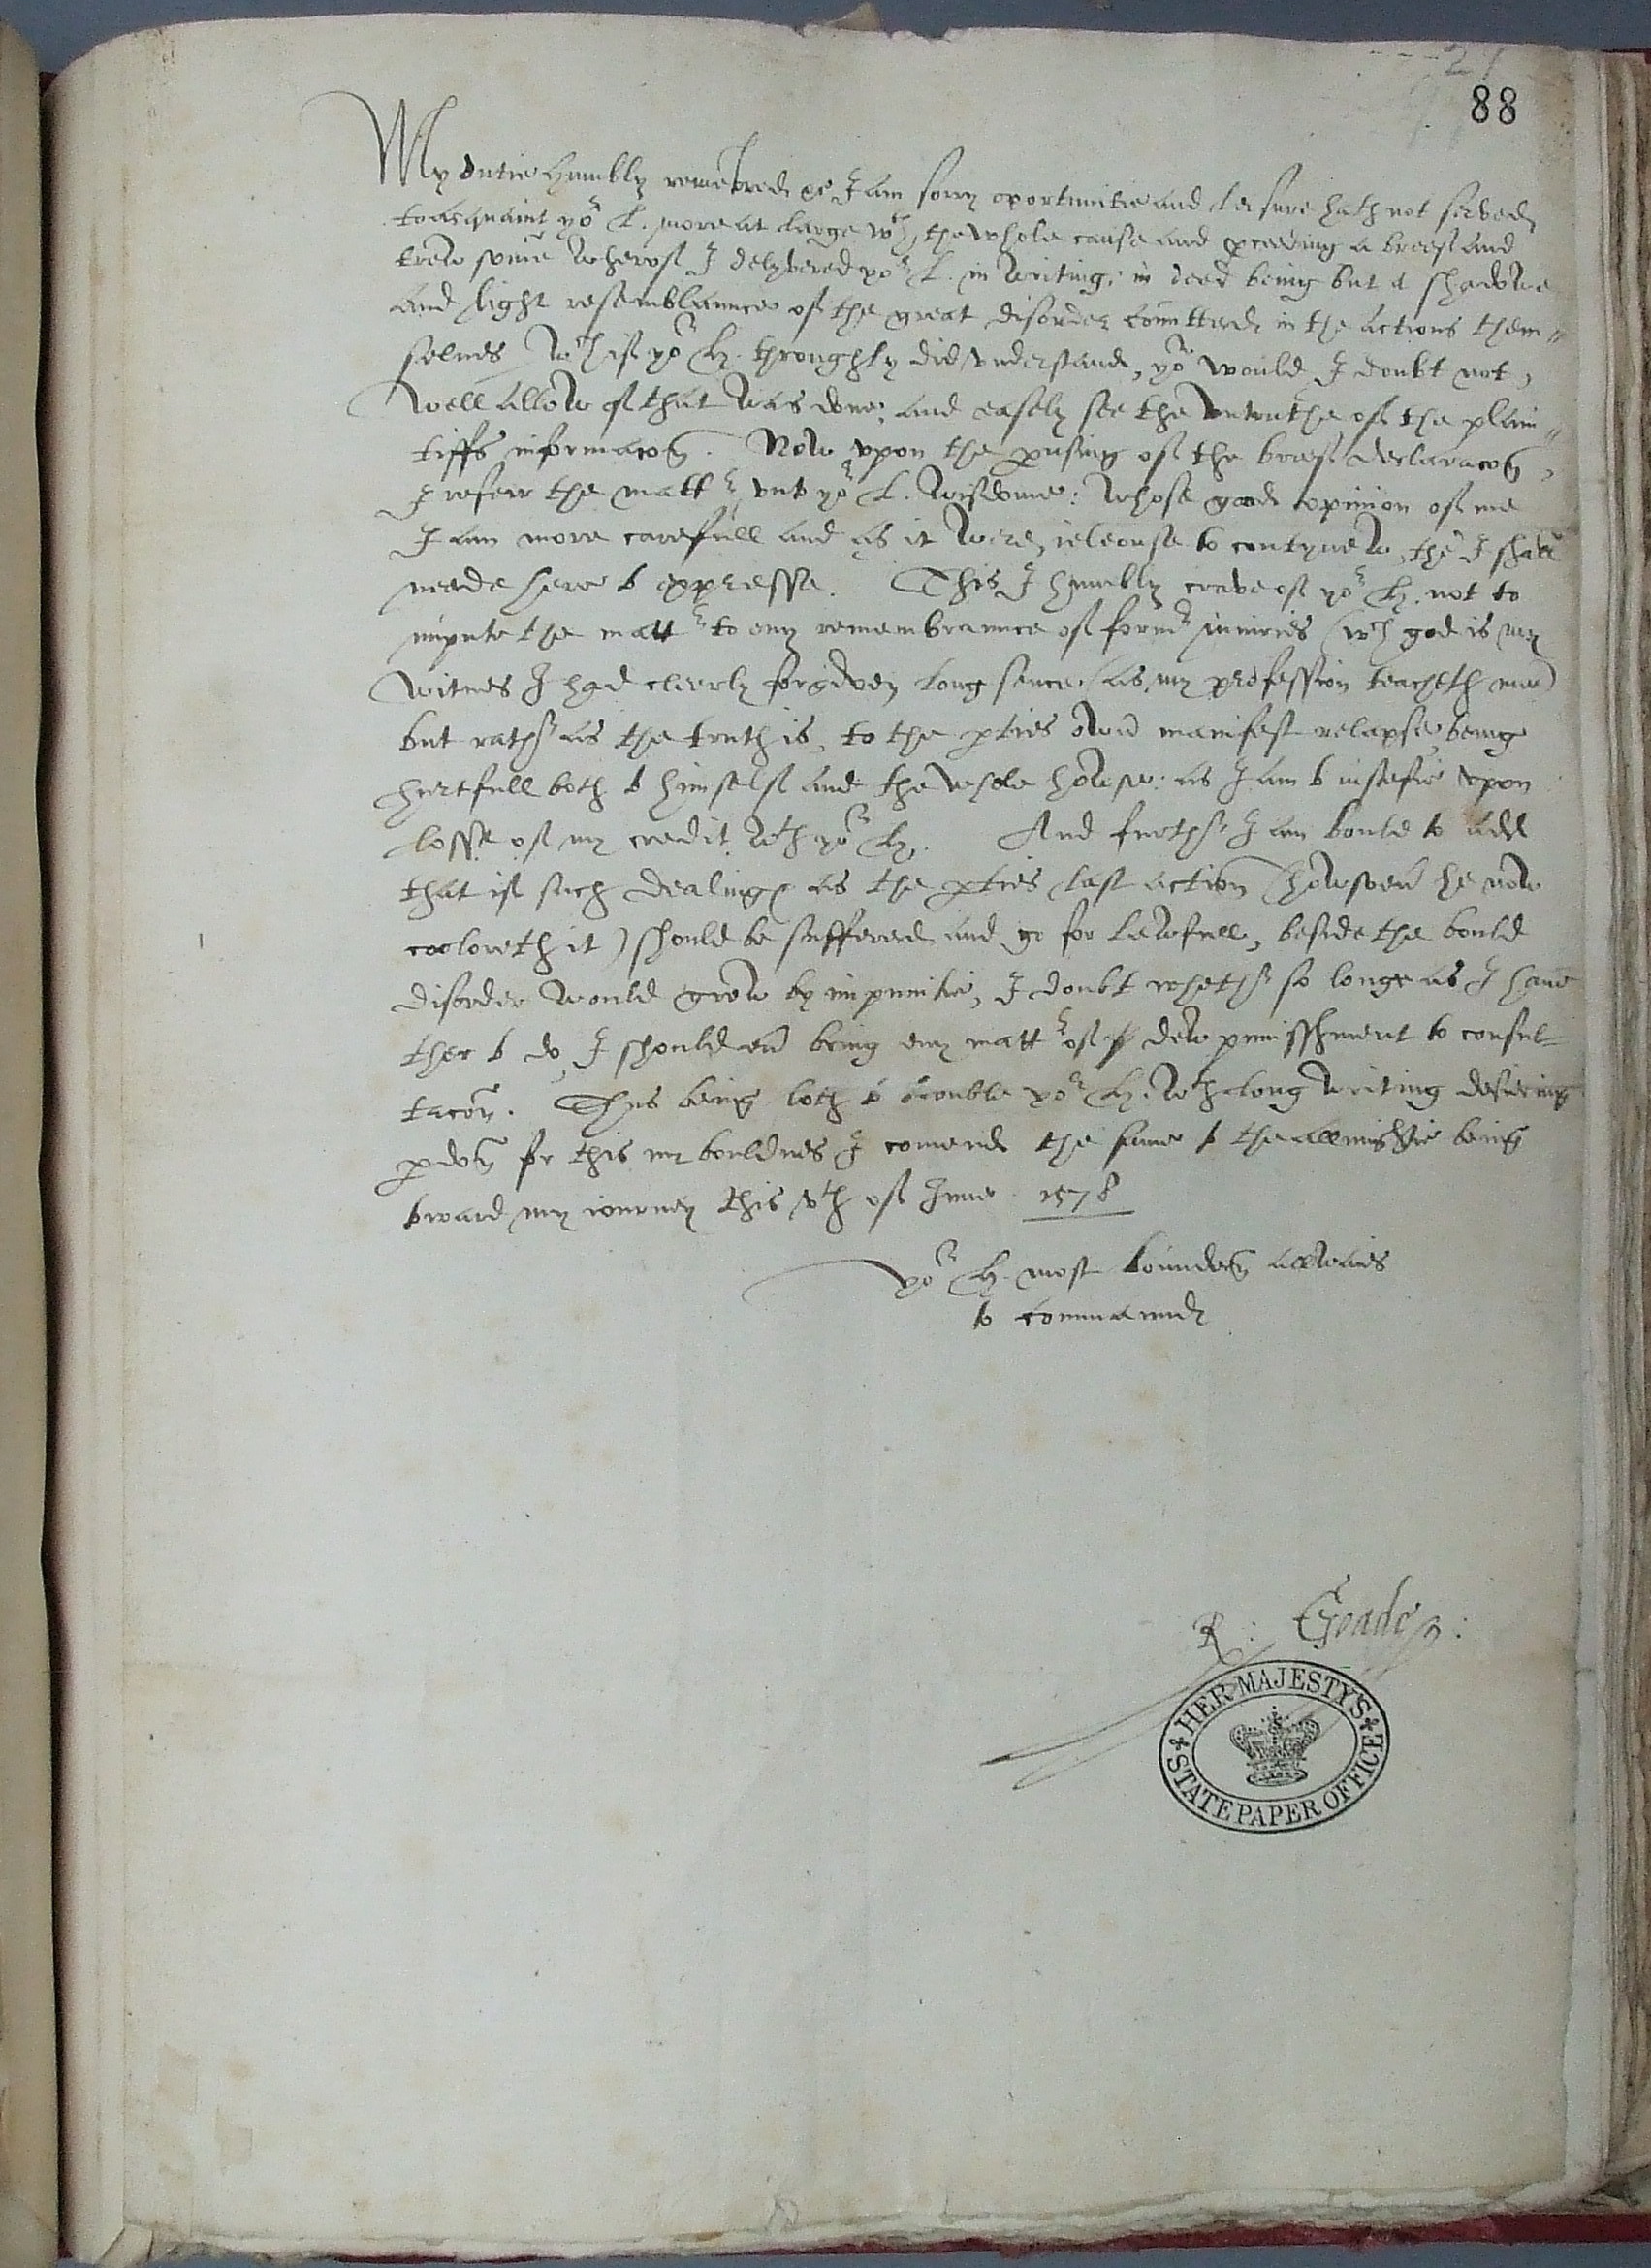 88
My dutie humbly remembred &c I am sorry oportunitie and leisure hath not served
to acquaint yor L. more at large wth the whole cause and proceeding a breef and
trew sume wherof I delyvered yor L. in writing: in deed being but a shadowe
and light resemblaunce of the great disorder comitted in the actions them=
selues wch if yor H. throughly did vnderstand, yor would I doubt not,
well allow of that was done: and easely see the vntruthe of the plain=
tiffs informacon. Now vpon the perusing of the breef declaracon,
I referr the mattr vnto yor L. wisdome: whose good opinion of me
I am more carefull and as it were ieleouse to contynew, then I shall
neede here to expresse. This I humbly crave of yor H. not to
impute the mattr to eny remembraunce of formr iniuries (wch god is my
witnes I had cleerly forgiven long sence as my profession teacheth mee)
but rathr as the truth is, to the pties own manifest relapse, being
hurtfull both to himself and the whole howse: as I am to iustefie vpon
losse of my credit wth yor H. And furthr I am bould to add
that if such dealings as the pties last action (howsoeuer he now
cooloreth it) should be suffered and go for lawfull, beside the bould
disorder would grow by impunitie, I doubt whethr so longe as I haue
ther to do, I should euer bring eny mattr of dew punisshment to consul=
tacon. Thus being loth to trouble yor H. wth long writing desiering
pdon for this my bouldnes I comend the same to the allmightie being
toward my iourney this vth of June 1578
yor H. most bounden allwaies
to commaund
R: Goade:
HER MAJESTY'S
STATE PAPER OFFICE